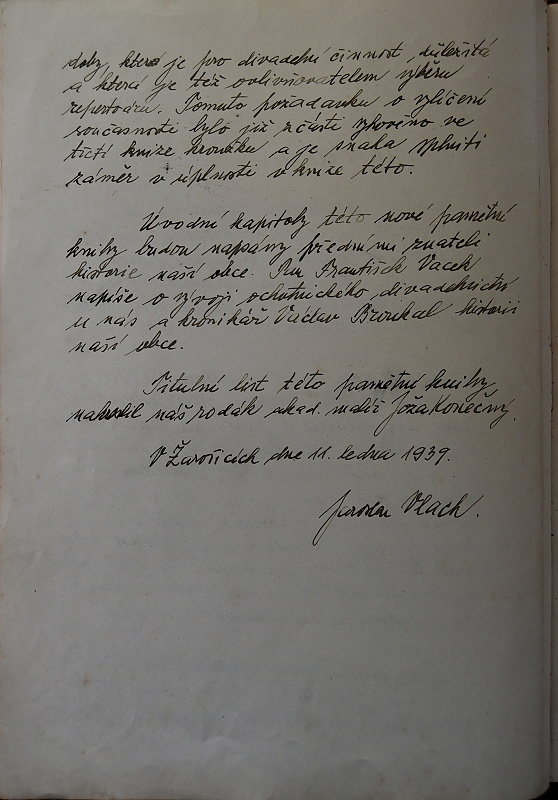 doby, která je pro divadelní činnost důležitá
a která je též ovlivňovatelem výběru
repertoiru. Tomuto požadavku o vylíčení
současnosti bylo již z části vyhověno ve
třetí knize kroniky a je snaha splniti
záměr v úplnosti v knize této.
Úvodní kapitoly této nové pamětní
knihy budou napsány předními znateli
historie naší obce. Pan František Vacek
napíše o vývoji ochotnického divadelnictví
u nás a kronikář Václav Broukal historii
naší obce.
Titulní list této pamětní knihy
nakreslil náš rodák akad. malíř Joža Konečný.
V Žarošicích dne 11. ledna 1939.
Jaroslav Vlach.